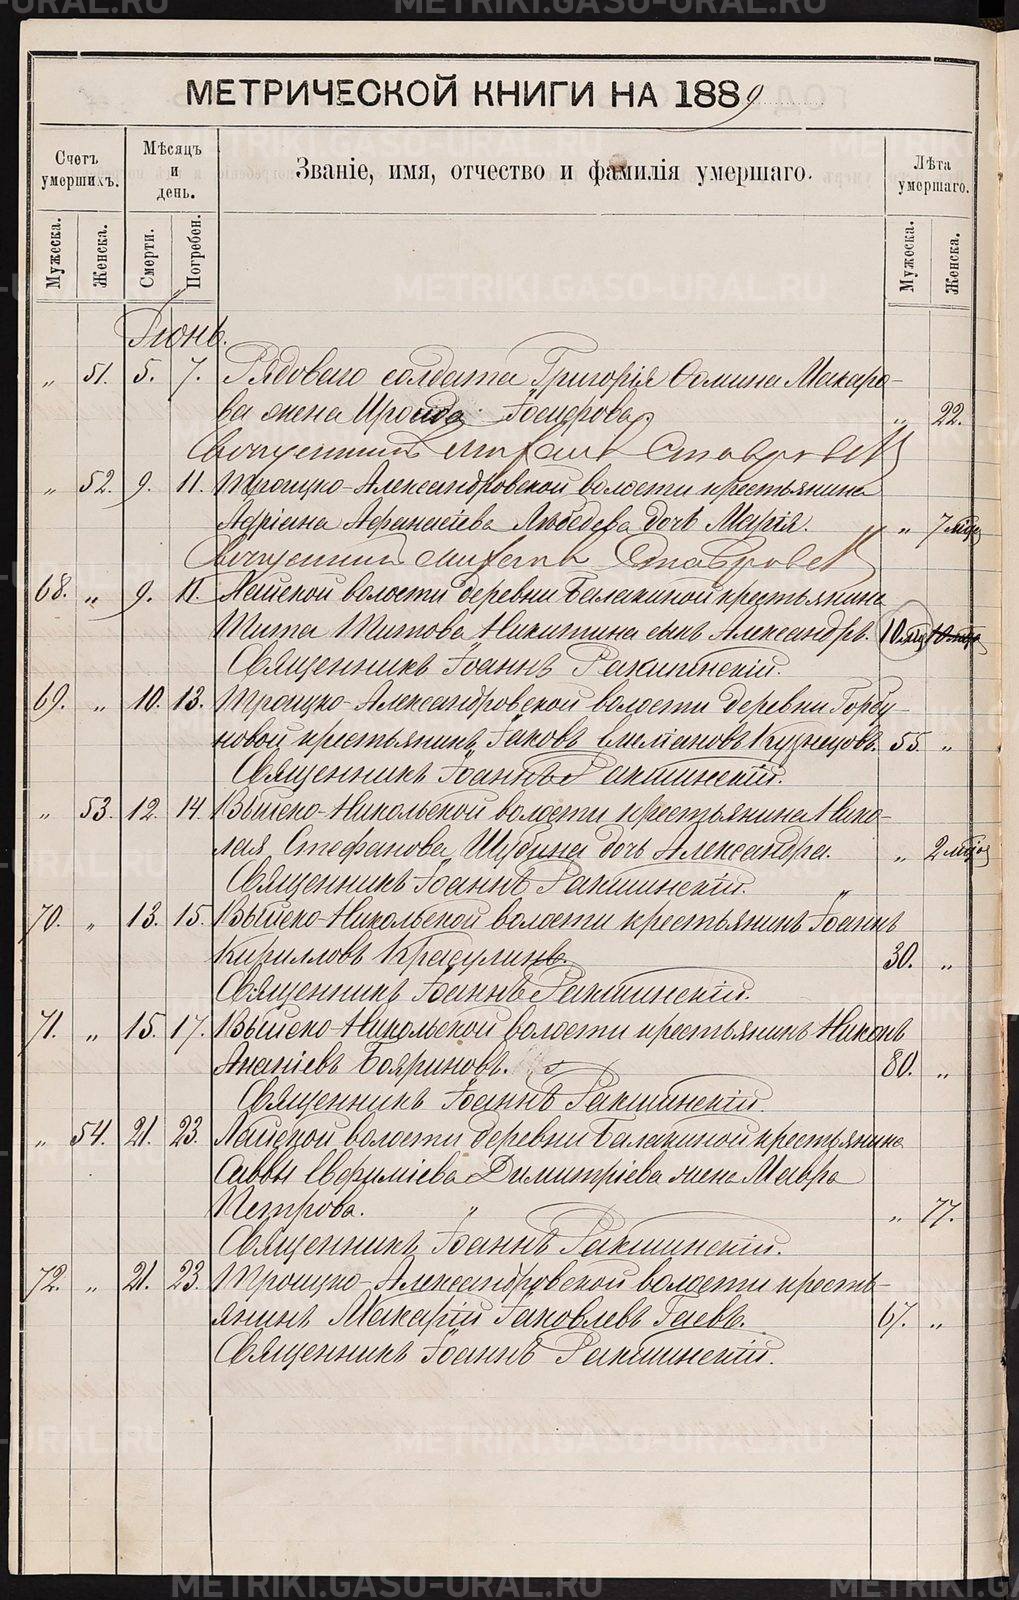 МЕТРИЧЕСКОЙ КНИГИ НА 1889
Счетъ умершихъ.
Мѣсяцъ и день.
Званіе, имя, отчество и фамилія умершаго.
Лѣта умершаго.
Мужеска. Женска. Смерти. Погребен. Мужеска. Женска.
Іюнь.
„ 51. 5. 7. Рядоваго солдата Григорія Ѳомина Макаро-
ва жена Ироида Іосифова. „ 22.
Священникъ Михаилъ Ставровскій
„ 52. 9. 11. Троицко-Александровской волости крестьянина
Адріана Афанасіева Лебедева дочь Марія. „ 7 мѣся
Священникъ Михаилъ Ставровскій
68. „ 9. 11. Лайской волости деревни Балакиной крестьянина
Тита Титова Никитина сынъ Александръ. 10 мѣс 10 мѣс
Священникъ Іоаннъ Ракшинскій.
69. „ 10. 13. Троицко-Александровской волости деревни Горбу-
новой крестьянинъ Іаковъ Емеліановъ Кузнецовъ. 55. „
Священникъ Іоаннъ Ракшинскій.
„ 53. 12. 14. Выйско-Никольской волости крестьянина Нико-
лая Стефанова Шубина дочь Александра. „ 2 мѣся
Священникъ Іоаннъ Ракшинскій.
70. „ 13. 15. Выйско-Никольской волости крестьянинъ Іоаннъ
Кирилловъ Красулинъ. 30. „
Священникъ Іоаннъ Ракшинскій.
71. „ 15. 17. Выйско-Никольской волости крестьянинъ Никонъ
Ананіевъ Бояриновъ. 80. „
Священникъ Іоаннъ Ракшинскій.
„ 54. 21. 23. Лайской волости деревни Балакиной крестьянина
Саввы Евфиміева Димитріева жена Мавра
Петрова. „ 77.
Священникъ Іоаннъ Ракшинскій.
72. „ 21. 23. Троицко-Александровской волости кресть-
янинъ Макарій Іаковлевъ Гаевъ. 67. „
Священникъ Іоаннъ Ракшинскій.
METRIKI.GASO-URAL.RU